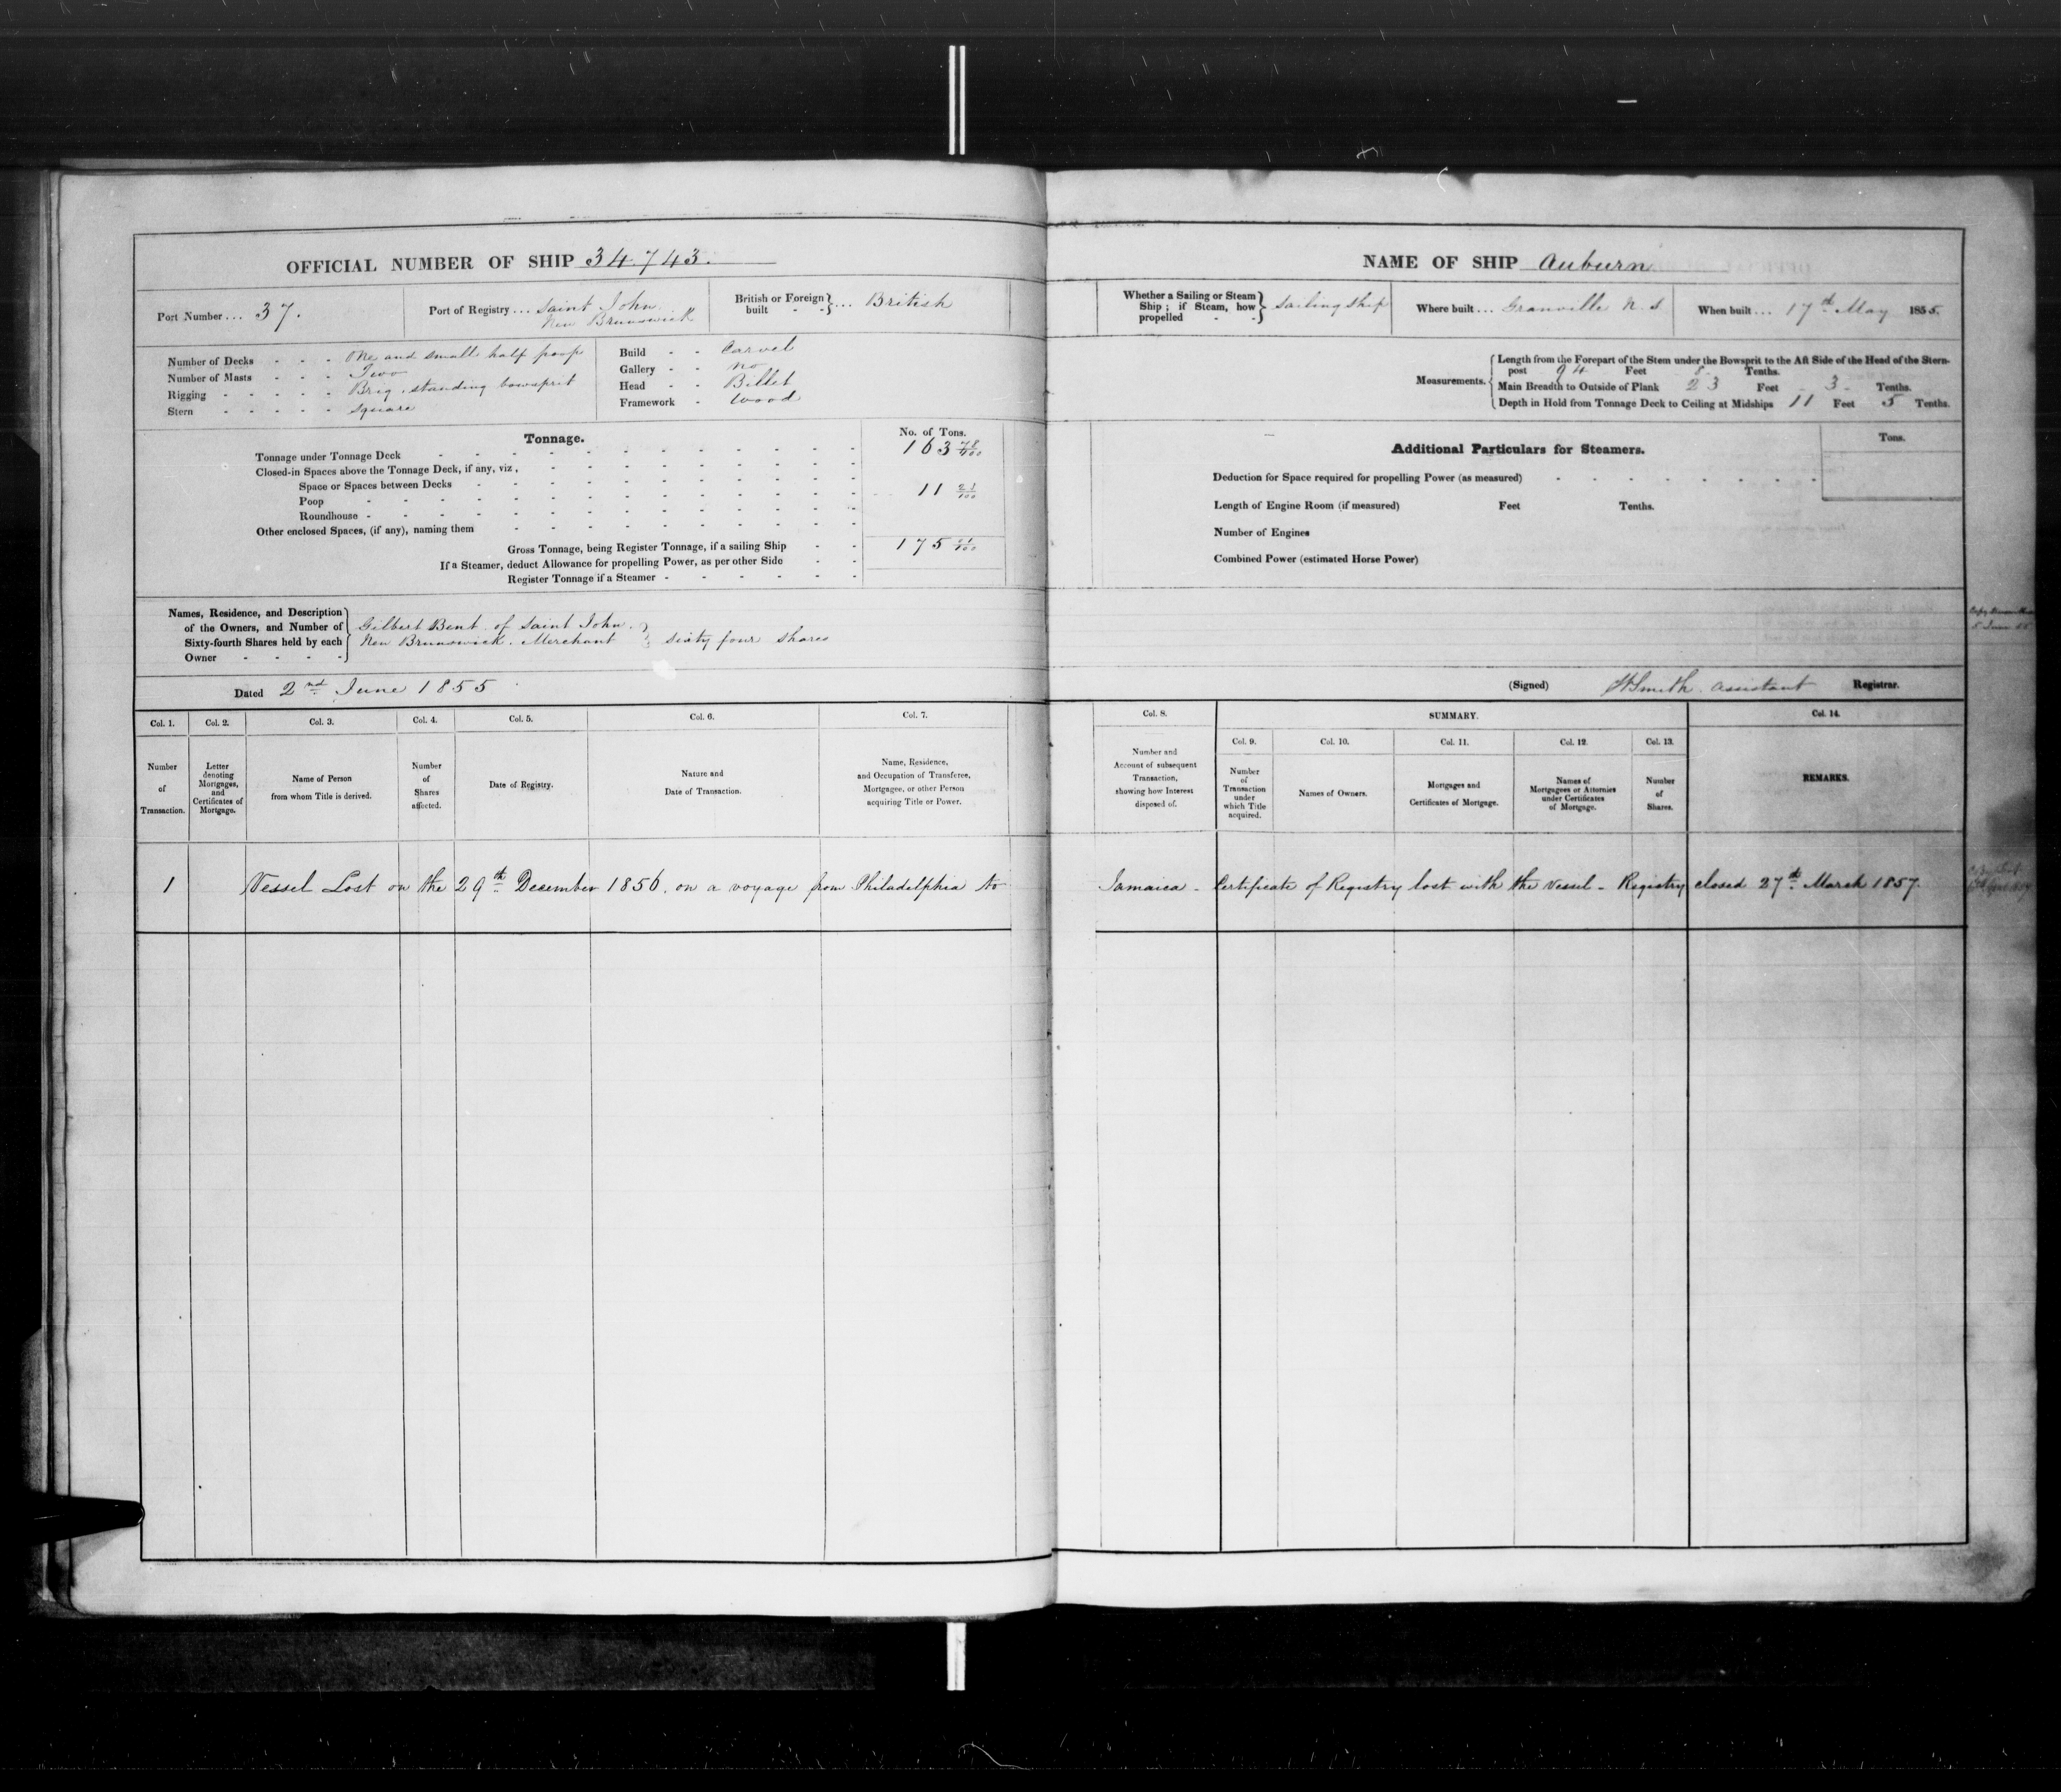 OFFICIAL NUMBER OF SHIP 34.743.
Port Number ... 37.
Port of Registry ... Saint John
New Brunswick
British or Foreign built } ... British
Number of Decks - - - One and small half poop
Number of Masts - - - Two
Rigging - - - - - Brig, standing bowsprit
Stern - - - - - Square
Build - - Carvel
Gallery - - No
Head - - Billet
Framework - Wood
Tonnage.
No. of Tons.
Tonnage under Tonnage Deck 163 78/100
Closed-in Spaces above the Tonnage Deck, if any, viz.,
Space or Spaces between Decks
Poop 11 23/100
Roundhouse
Other enclosed Spaces, (if any), naming them
Gross Tonnage, being Register Tonnage, if a sailing Ship 175 01/100
If a Steamer, deduct Allowance for propelling Power, as per other Side
Register Tonnage if a Steamer
Names, Residence, and Description of the Owners, and Number of Sixty-fourth Shares held by each Owner
Gilbert Bent of Saint John
New Brunswick. Merchant } sixty four shares
Dated 2nd June 1855
Col. 1. Col. 2. Col. 3. Col. 4. Col. 5. Col. 6. Col. 7.
Number of Transaction.
Letter denoting Mortgages, and Certificates of Mortgage.
Name of Person from whom Title is derived.
Number of Shares affected.
Date of Registry.
Nature and Date of Transaction.
Name, Residence, and Occupation of Transferee, Mortgagee, or other Person acquiring Title or Power.
1 Vessel Lost on the 29th December 1856. on a voyage from Philadelphia to
NAME OF SHIP Auburn
Whether a Sailing or Steam Ship; if Steam, how propelled } Sailing Ship
Where built ... Granville N. S.
When built ... 17th May 1855.
Measurements.
Length from the Forepart of the Stem under the Bowsprit to the Aft Side of the Head of the Stern-
post 94 Feet 8 Tenths.
Main Breadth to Outside of Plank 23 Feet 3 Tenths.
Depth in Hold from Tonnage Deck to Ceiling at Midships 11 Feet 5 Tenths.
Additional Particulars for Steamers.
Tons.
Deduction for Space required for propelling Power (as measured)
Length of Engine Room (if measured) Feet Tenths.
Number of Engines
Combined Power (estimated Horse Power)
(Signed) Smith Assistant Registrar.
Col. 8. SUMMARY. Col. 14.
Col. 9. Col. 10. Col. 11. Col. 12. Col. 13.
Number and Account of subsequent Transaction, showing how Interest disposed of.
Number of Transaction under which Title acquired.
Names of Owners.
Mortgages and Certificates of Mortgage.
Names of Mortgagees or Attornies under Certificates of Mortgage.
Number of Shares.
REMARKS.
Jamaica - Certificate of Registry lost with the Vessel - Registry closed 27th March 1857.